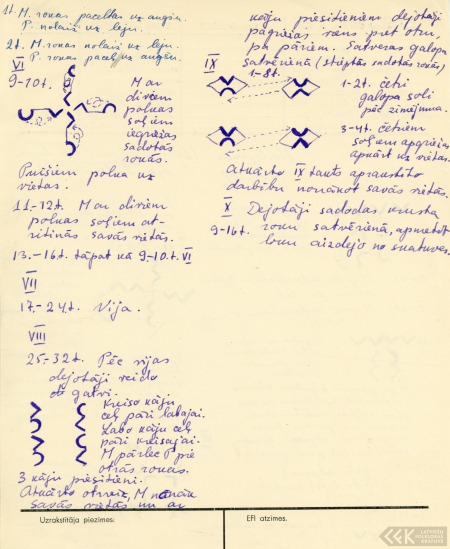 1t. M. rokas paceltas uz augšu.
P. nolaiž uz leju.
2t. M. rokas nolaiž uz leju.
P. rokas paceļ uz augšu.
VI
9-10t. M ar
diviem
polkas
soļiem
iegriežas
sadotās
rokās.
Puišiem polka uz
vietas.
11.-12t. M ar diviem
polkas soļiem at-
ritinās savās vietās.
13.-16t. tāpat kā 9-10.t. VI
VII
17.-24t. Vija.
VIII
25.-32t. Pēc vijas
dejotāji veido
gatvi.
Kreiso kāju
ceļ pāri labajai.
Labo kāju ceļ
pāri kreisajai.
M pārlec P pie
otrās rokas.
3 kāju piesitieni.
Atkārto otrreiz, M nonāk
savās vietās un ar
kāju piesitieniem dejotāji
pagriežas viens pret otru,
pa pāriem. Satveras galopa
IX satvērienā (stieptās sadotās rokās)
1-8t.
1-2t. četri
galopa soļi
pēc zīmējuma.
3-4t. četriem
soļiem apgriežas
apkārt uz vietas.
Atkārto IX takts aprakstīto
darbību nonākot savās vietās.
X Dejotāji sadodas krusta
9-16t. roku satvērienā, apmetot
loku aizdejo no skatuves.
Uzrakstītāja piezīmes:
EFI atzīmes.
LATVIEŠU
FOLKLORAS
KRĀTUVE